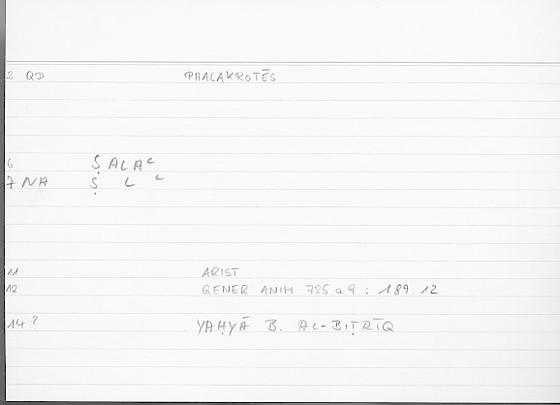 2 QD PHALAKROTĒS
6 ṢALAᶜ
7 NA Ṣ L ᶜ
11 ARIST
12 GENER ANIM 785 a 9 : 189.12
14 ? YAḤYĀ B. AL-BIṬRĪQ